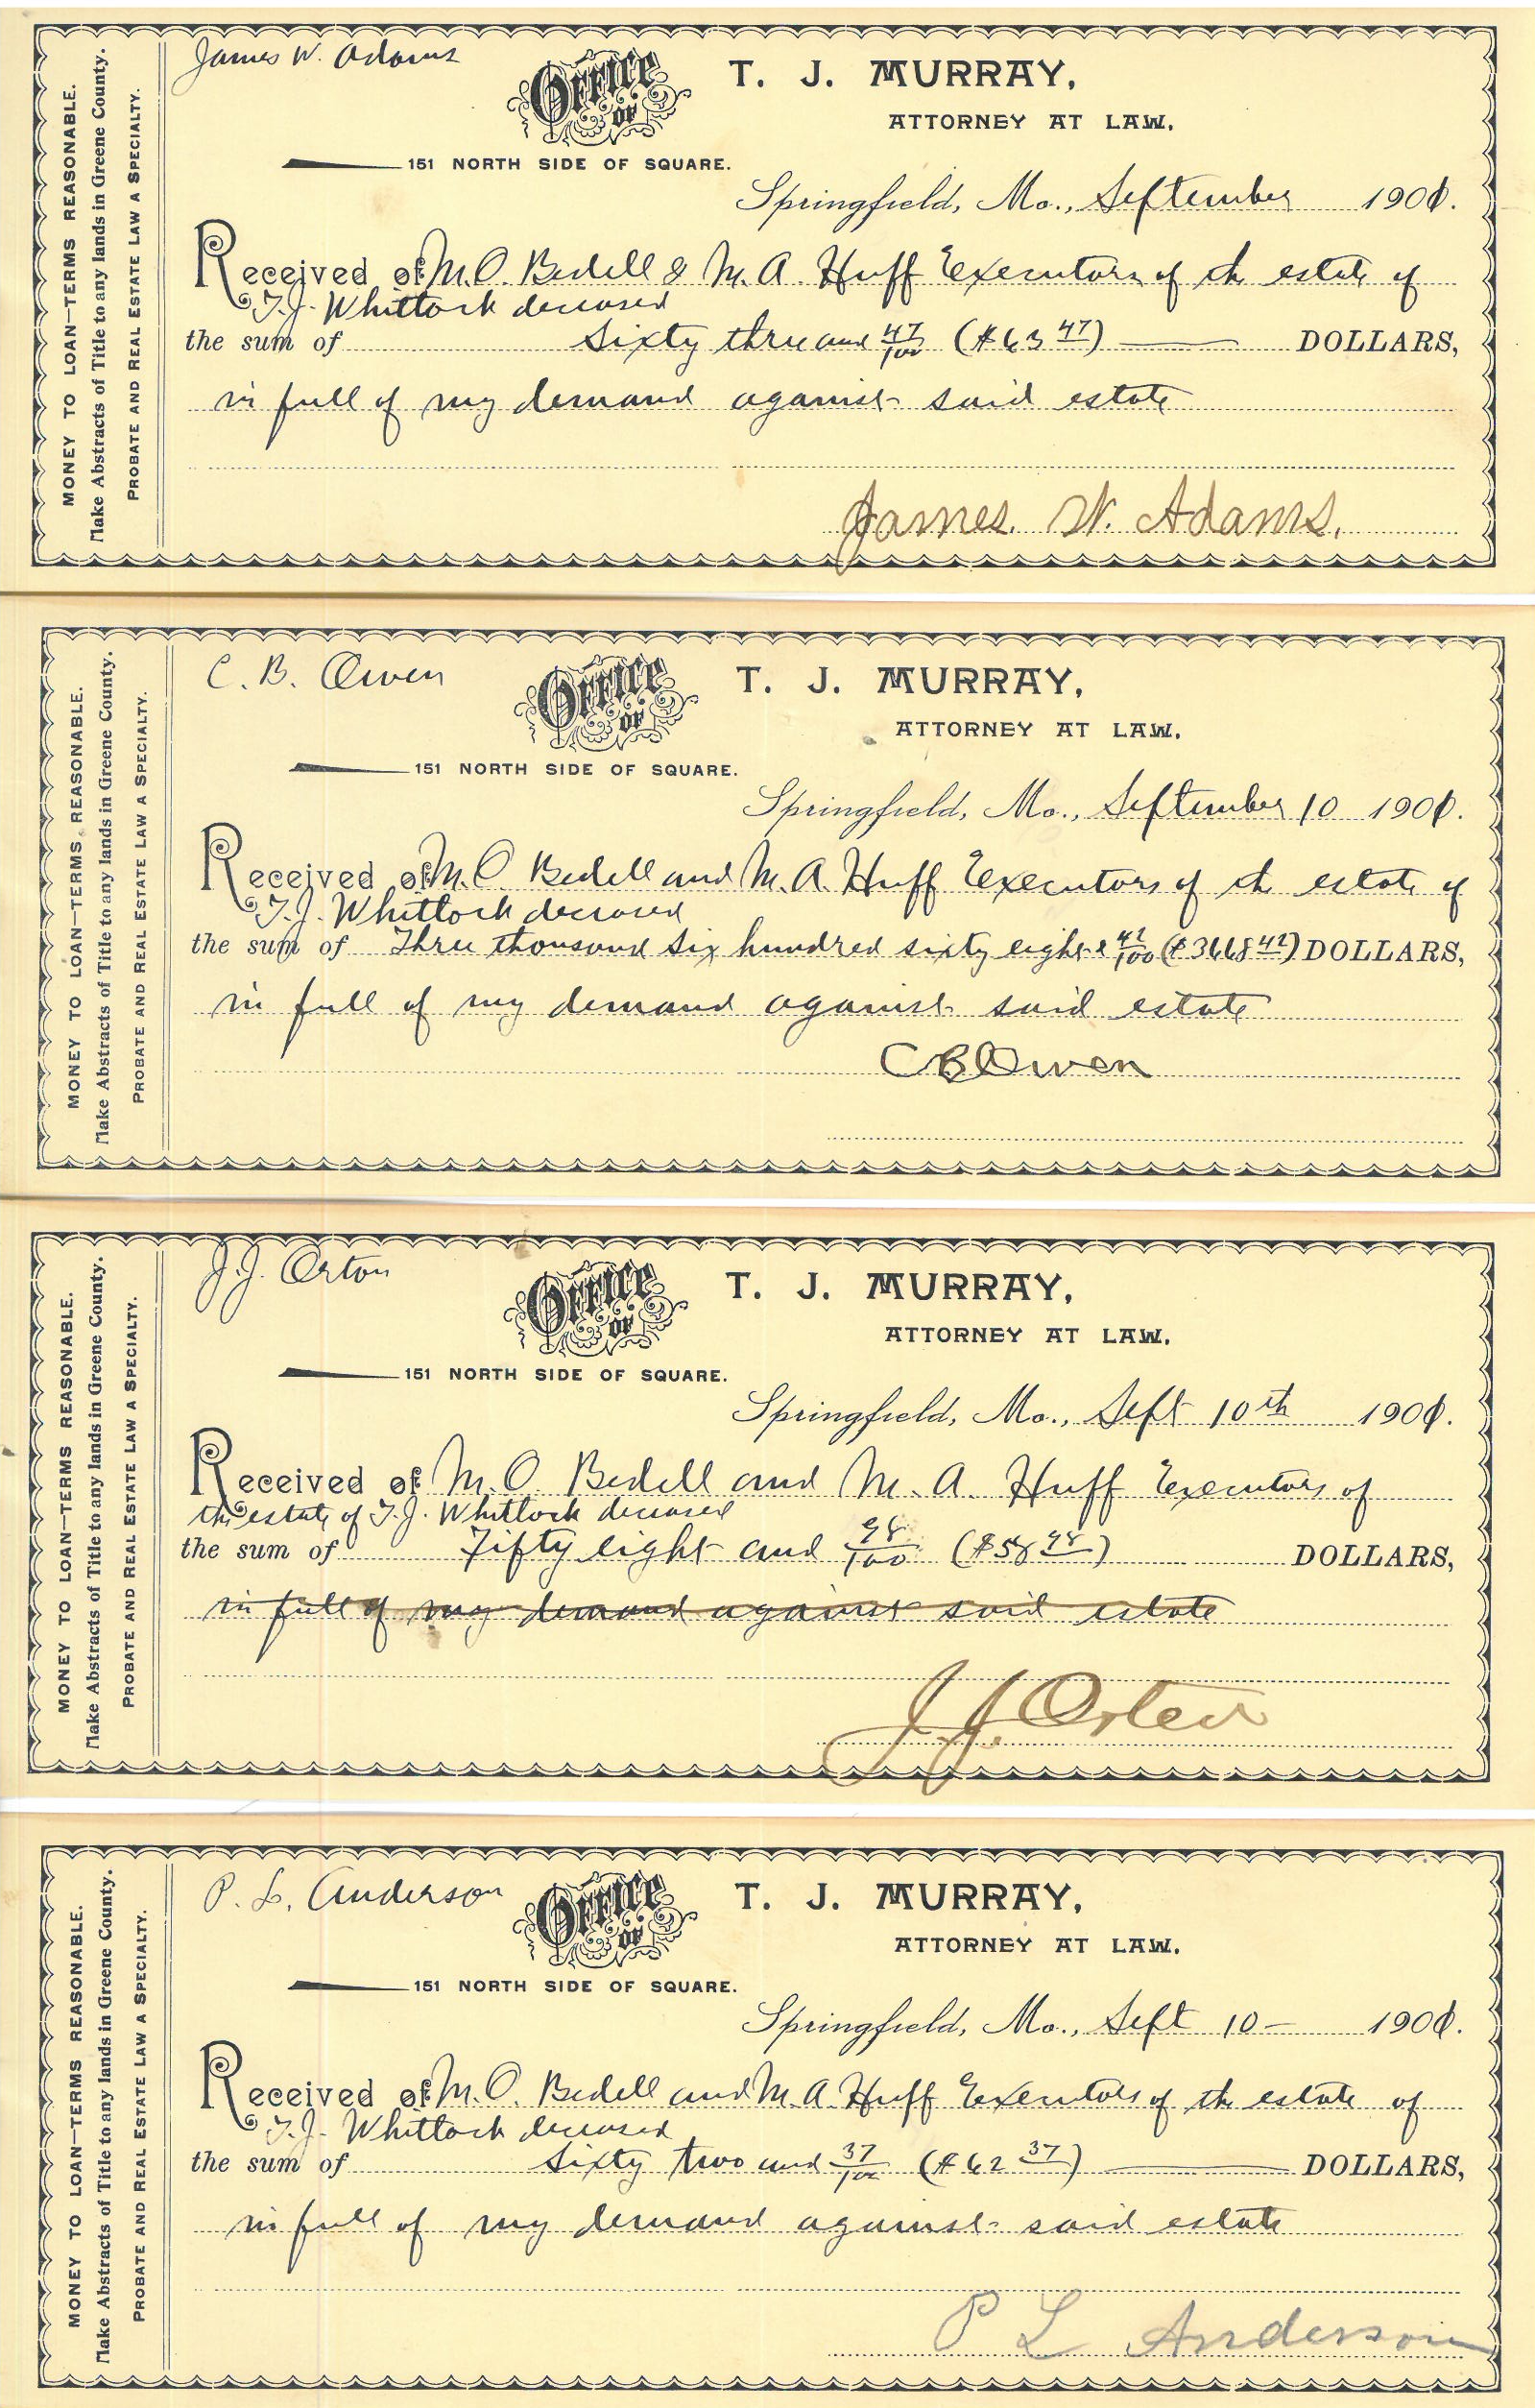 MONEY TO LOAN—TERMS REASONABLE.
Make Abstracts of Title to any lands in Greene County.
PROBATE AND REAL ESTATE LAW A SPECIALTY.
James W. Adams
OFFICE OF
T. J. MURRAY,
ATTORNEY AT LAW,
151 NORTH SIDE OF SQUARE.
Springfield, Mo., September 1901.
Received of M.O. Bedell & M. A. Huff Executors of th estate of
T.J. Whitlock deceased
the sum of Sixty three and 47/100 ($63 47) DOLLARS,
in full of my demand against said estate
James. W. Adams.
MONEY TO LOAN—TERMS REASONABLE.
Make Abstracts of Title to any lands in Greene County.
PROBATE AND REAL ESTATE LAW A SPECIALTY.
C. B. Owen
OFFICE OF
T. J. MURRAY,
ATTORNEY AT LAW,
151 NORTH SIDE OF SQUARE.
Springfield, Mo., September 10 1901.
Received of M.O. Bedell and M. A. Huff Executors of th estate of
T.J. Whitlock deceased
the sum of Three thousand six hundred sixty eight & 42/100 ($3668 42) DOLLARS,
in full of my demand against said estate
C B Owen
MONEY TO LOAN—TERMS REASONABLE.
Make Abstracts of Title to any lands in Greene County.
PROBATE AND REAL ESTATE LAW A SPECIALTY.
J.J. Orton
OFFICE OF
T. J. MURRAY,
ATTORNEY AT LAW,
151 NORTH SIDE OF SQUARE.
Springfield, Mo., Sept 10th 1901.
Received of M.O. Bedell and M. A. Huff Executors of
the estate of T.J. Whitlock deceased
the sum of Fifty eight and 98/100 ($58 98) DOLLARS,
in full of my demand against said estate
J J Orten
MONEY TO LOAN—TERMS REASONABLE.
Make Abstracts of Title to any lands in Greene County.
PROBATE AND REAL ESTATE LAW A SPECIALTY.
P. L. Anderson
OFFICE OF
T. J. MURRAY,
ATTORNEY AT LAW,
151 NORTH SIDE OF SQUARE.
Springfield, Mo., Sept 10— 1901.
Received of M.O. Bedell and M. A. Huff Executors of th estate of
T.J. Whitlock deceased
the sum of Sixty two and 37/100 ($62 37) DOLLARS,
in full of my demand against said estate
P L Anderson